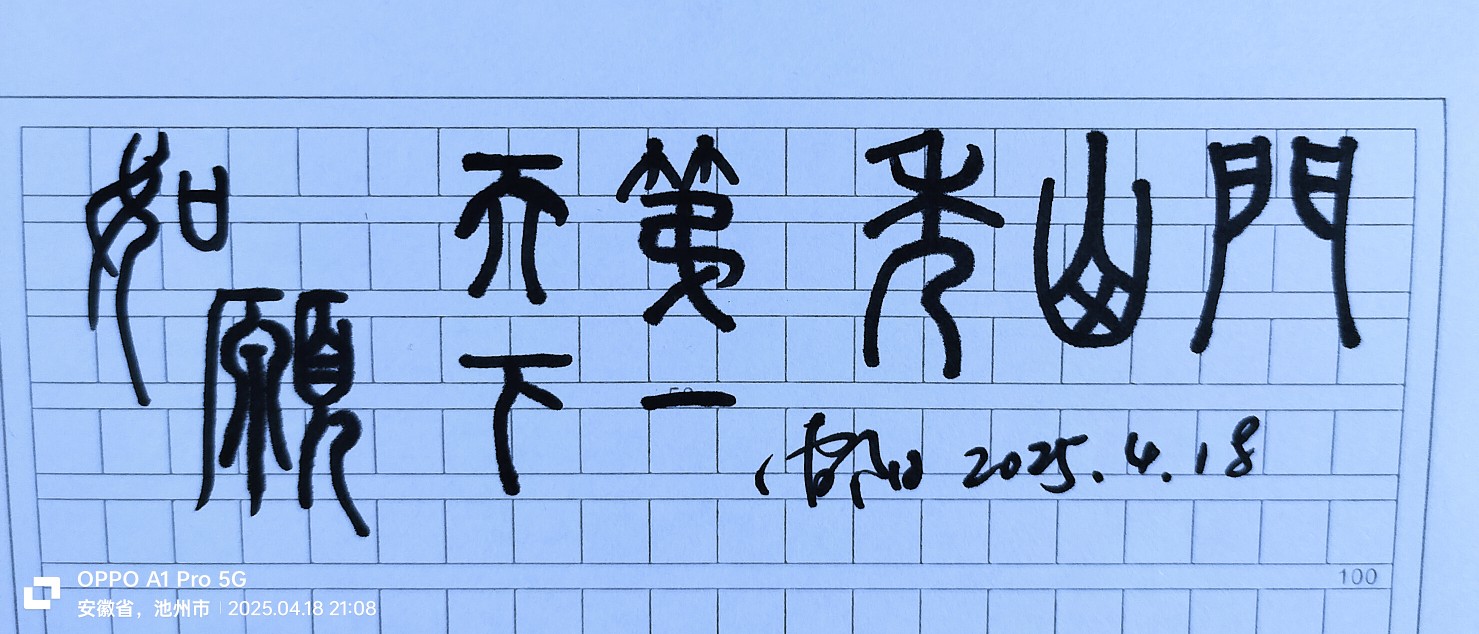 如願
天下
第一
秀山門
2025.4.18
100
OPPO A1 Pro 5G
安徽省，池州市 | 2025.04.18 21:08